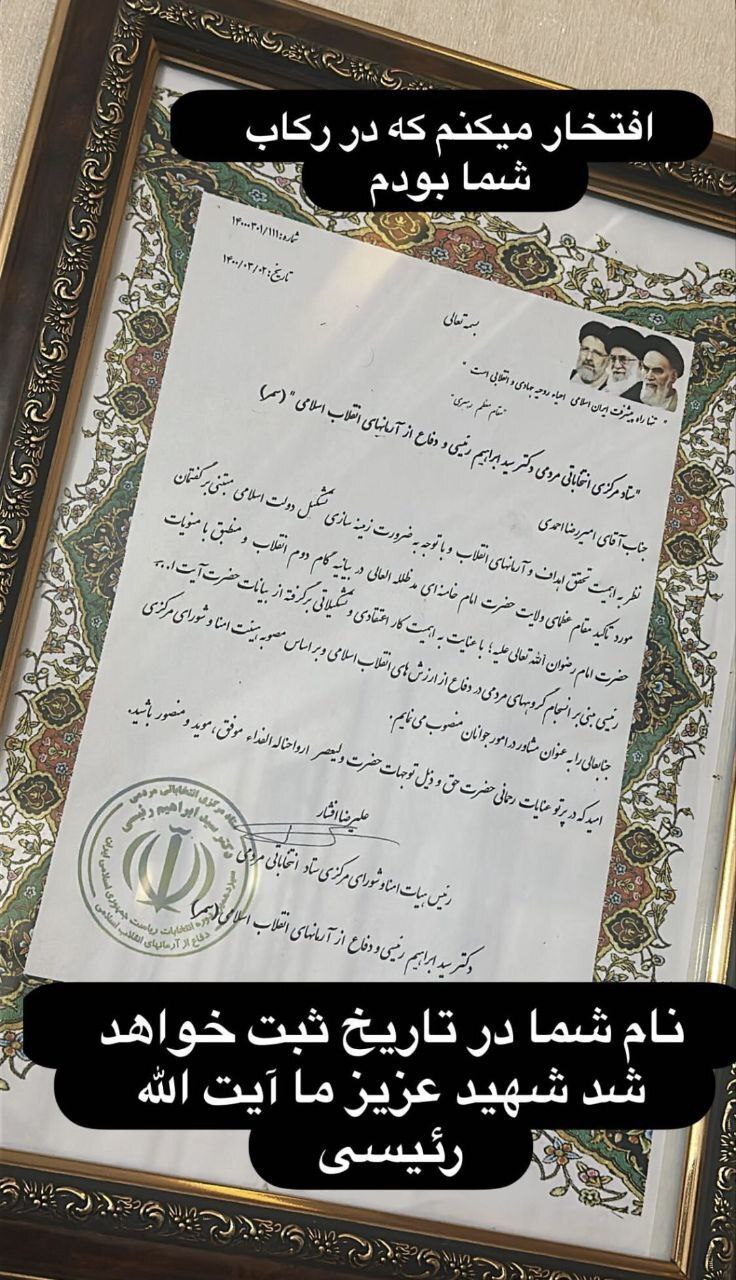 افتخار میکنم که در رکاب
شما بودم
شماره: ۱۴۰۰۰۳۰۱/۱۱۱
تاریخ: ۱۴۰۰/۰۳/۰۲
بسمه تعالی
" تنها راه پیشرفت ایران اسلامی احیاء روحیه جهادی و انقلابی است "
"مقام معظم رهبری"
"ستاد مرکزی انتخاباتی مردمی دکتر سید ابراهیم رئیسی و دفاع از آرمانهای انقلاب اسلامی" (سمر)
جناب آقای امیررضا احمدی
نظر به اهمیت تحقق اهداف و آرمانهای انقلاب و با توجه به ضرورت زمینه سازی تشکیل دولت اسلامی مبتنی بر گفتمان
مورد تأکید مقام عظمای ولایت حضرت امام خامنه ای مدظله العالی در بیانیه گام دوم انقلاب و منطبق با منویات
حضرت امام رضوان الله تعالی علیه؛ با عنایت به اهمیت کار اعتقادی و تشکیلاتی برگرفته از بیانات حضرت آیت ا...
رئیسی مبنی بر انسجام گروههای مردمی در دفاع از ارزش های انقلاب اسلامی و بر اساس مصوبه هیئت امنا و شورای مرکزی
جنابعالی را به عنوان مشاور در امور جوانان منصوب می نمایم.
امید که در پرتو عنایات رحمانی حضرت حق و ذیل توجهات حضرت ولیعصر ارواحنا له الفداء موفق، موید و منصور باشید.
علیرضا افشار
رئیس هیات امنا و شورای مرکزی ستاد انتخاباتی مردمی
دکتر سید ابراهیم رئیسی و دفاع از آرمانهای انقلاب اسلامی (سمر)
ستاد مرکزی انتخاباتی مردمی
دکتر سید ابراهیم رئیسی
سیزدهمین دوره انتخابات ریاست جمهوری اسلامی ایران
دفاع از آرمانهای انقلاب اسلامی
نام شما در تاریخ ثبت خواهد
شد شهید عزیز ما آیت الله
رئیسی